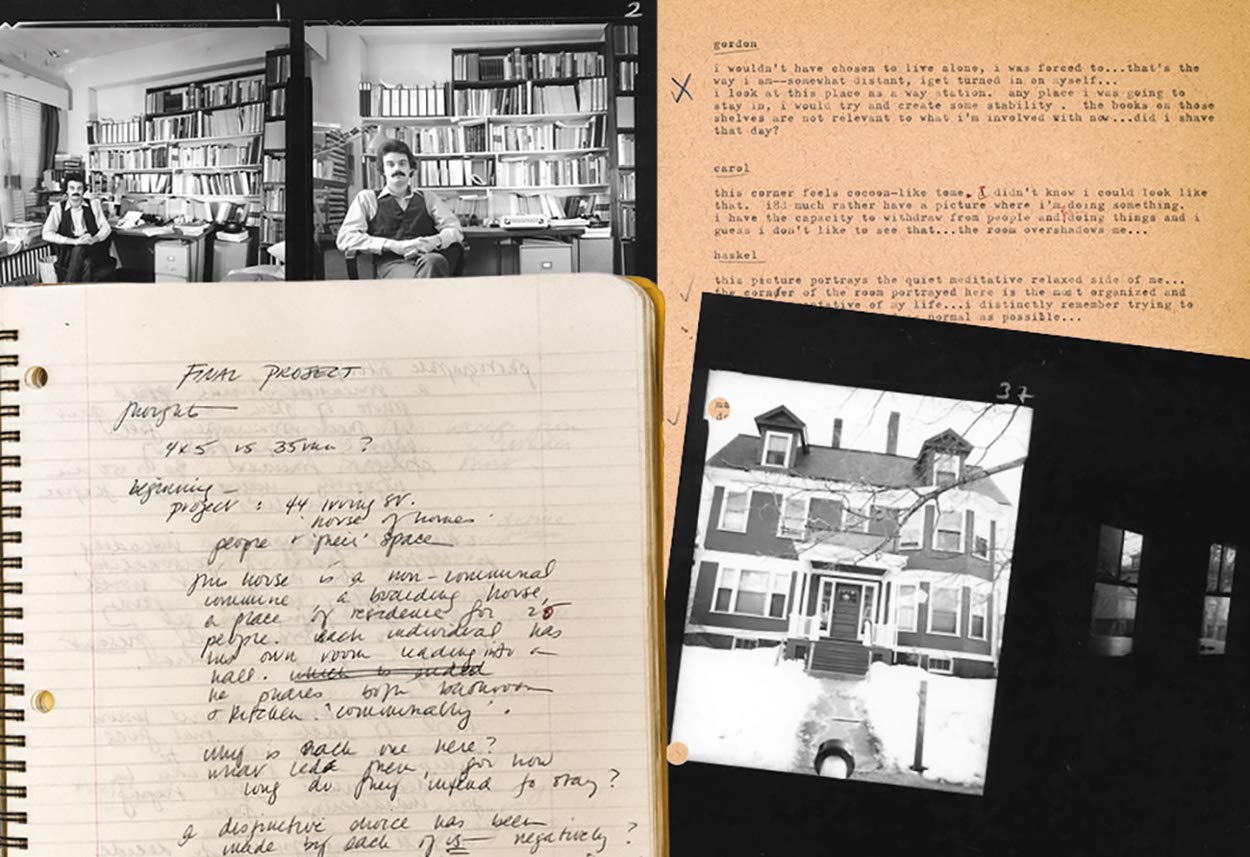 2
gordon
i wouldn't have chosen to live alone, i was forced to...that's the
way i am--somewhat distant, iget turned in on myself...
i look at this place as a way station. any place i was going to
stay in, i would try and create some stability . the books on those
shelves are not relevant to what i'm involved with now...did i shave
that day?
carol
this corner feels cocoon-like tome. I didn't know i could look like
that. i8d much rather have a picture where i'm doing something.
i have the capacity to withdraw from people and doing things and i
guess i don't like to see that...the room overshadows me...
haskel
this picture portrays the quiet meditative relaxed side of me...
the corner of the room portrayed here is the most organized and
tative of my life...i distinctly remember trying to
normal as possible...
FINAL PROJECT
thought
4x5 vs 35mm ?
beginning
project : 44 Irving St.
'house of homes'
people & 'their' space
This house is a non-communal
commune, a boarding house,
a place of residence for 25
people. each individual has
his own room leading into a
hall. which is ended
he shares both bathroom
& kitchen 'communally'.
why is each one here?
what led them, for how
long do they intend to stay?
a distinctive choice has been
made by each of us — negatively?
37
ma
dr